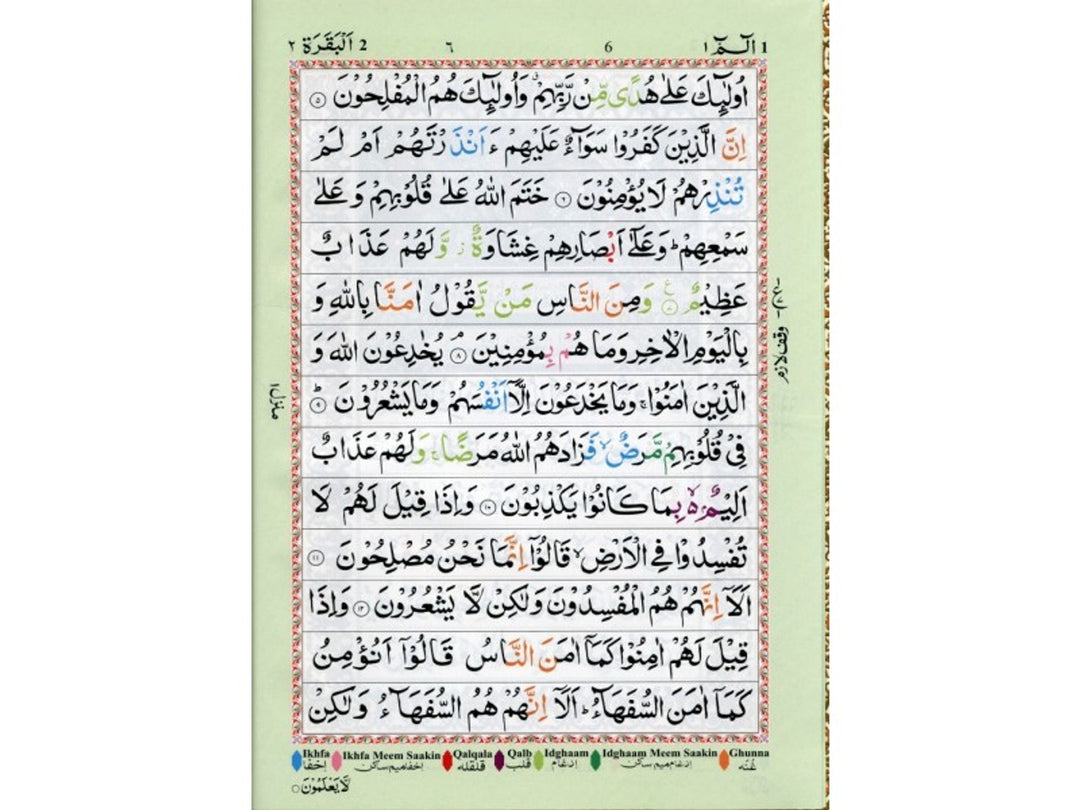 الٓمّٓ ١ 1 6 ٦ 2 اَلْبَقَرَة ٢
اُولٰٓئِكَ عَلٰى هُدًى مِّنْ رَّبِّهِمْ ۙ وَاُولٰٓئِكَ هُمُ الْمُفْلِحُوْنَ ۝٥
اِنَّ الَّذِيْنَ كَفَرُوْا سَوَآءٌ عَلَيْهِمْ ءَاَنْذَرْتَهُمْ اَمْ لَمْ
تُنْذِرْهُمْ لَا يُؤْمِنُوْنَ ۝٦ خَتَمَ اللّٰهُ عَلٰى قُلُوْبِهِمْ وَ عَلٰى
سَمْعِهِمْ ؕ وَعَلٰٓى اَبْصَارِهِمْ غِشَاوَةٌ ؗ وَّلَهُمْ عَذَابٌ
عَظِيْمٌ ۝٧ وَمِنَ النَّاسِ مَنْ يَّقُوْلُ اٰمَنَّا بِاللّٰهِ وَ
بِالْيَوْمِ الْاٰخِرِ وَمَا هُمْ بِمُؤْمِنِيْنَ ۘ ۝٨ يُخٰدِعُوْنَ اللّٰهَ وَ
الَّذِيْنَ اٰمَنُوْا ۚ وَمَا يَخْدَعُوْنَ اِلَّاۤ اَنْفُسَهُمْ وَمَا يَشْعُرُوْنَ ؕ ۝٩
فِيْ قُلُوْبِهِمْ مَّرَضٌ ۙ فَزَادَهُمُ اللّٰهُ مَرَضًا ۚ وَلَهُمْ عَذَابٌ
اَلِيْمٌ ۢ ۙ بِمَا كَانُوْا يَكْذِبُوْنَ ۝١٠ وَاِذَا قِيْلَ لَهُمْ لَا
تُفْسِدُوْا فِي الْاَرْضِ ۙ قَالُوْۤا اِنَّمَا نَحْنُ مُصْلِحُوْنَ ۝١١
اَلَاۤ اِنَّهُمْ هُمُ الْمُفْسِدُوْنَ وَلٰكِنْ لَّا يَشْعُرُوْنَ ۝١٢ وَاِذَا
قِيْلَ لَهُمْ اٰمِنُوْا كَمَاۤ اٰمَنَ النَّاسُ قَالُوْۤا اَنُؤْمِنُ
كَمَاۤ اٰمَنَ السُّفَهَآءُ ؕ اَلَاۤ اِنَّهُمْ هُمُ السُّفَهَآءُ وَلٰكِنْ
وقف لازم
منزل ١
Ikhfa Ikhfa Meem Saakin Qalqala Qalb Idghaam Idghaam Meem Saakin Ghunna
اِخفَا اخفامیم ساکن قلقله قلب اِدغام ادغام میم ساکن غُنّه
لَّا يَعْلَمُوْنَ ۝